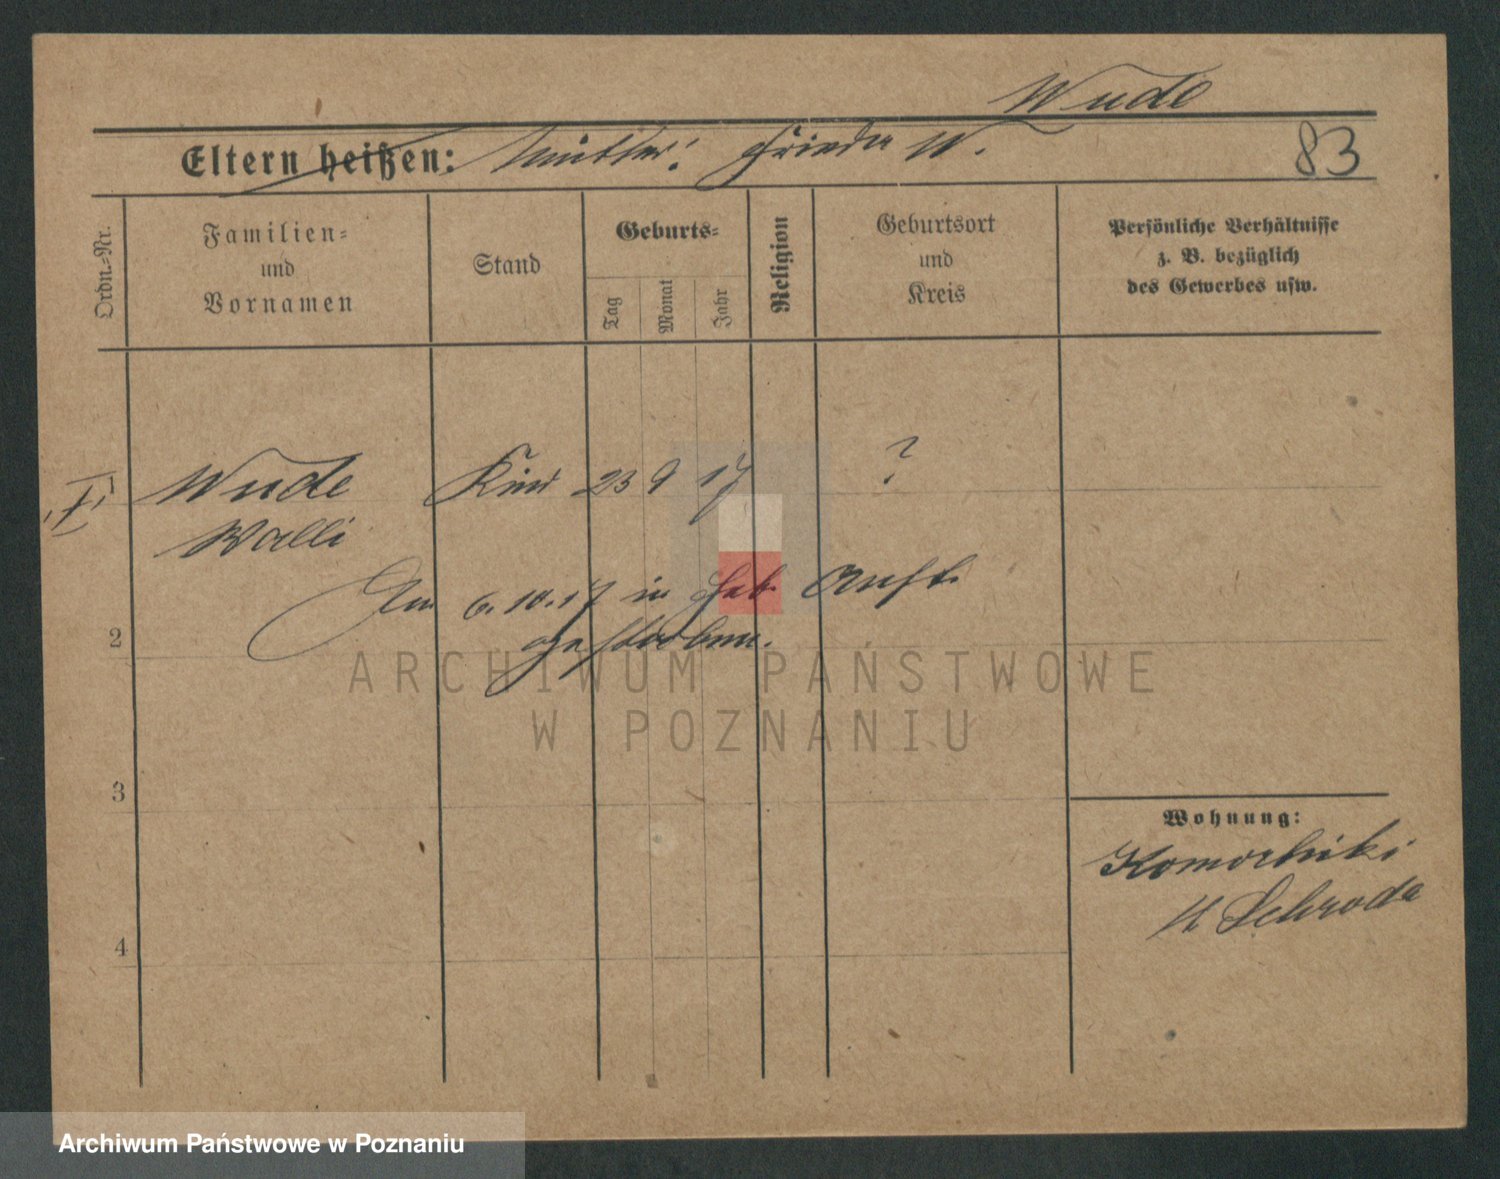 Wude
Eltern heißen: Mutter: Frieda W.
83
Ordn.-Nr.
Familien-
und
Vornamen
Stand
Geburts-
Tag
Monat
Jahr
Religion
Geburtsort
und
Kreis
Persönliche Verhältnisse
z. B. bezüglich
des Gewerbes usw.
1 Wude Kind 23 9 17 ?
Walli
Am 6.10.17 in Heb. Anst.
gestorben.
2
3
4
Wohnung:
Schroda
ARCHIWUM PAŃSTWOWE
W POZNANIU
Archiwum Państwowe w Poznaniu